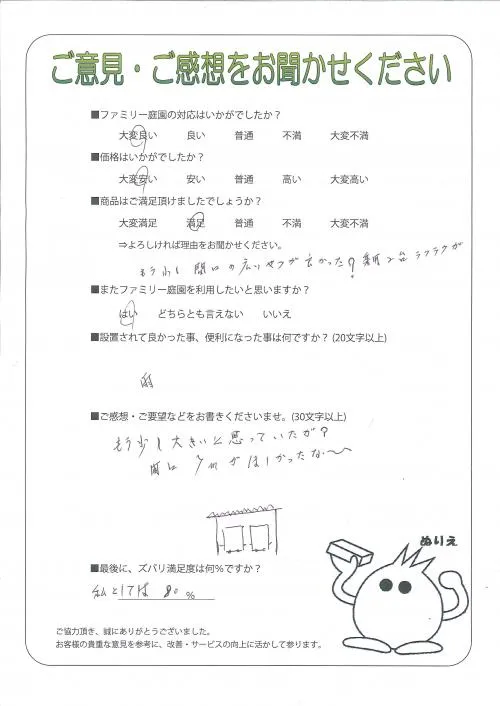 ご意見・ご感想をお聞かせください
■ファミリー庭園の対応はいかがでしたか？
大変良い 良い 普通 不満 大変不満
■価格はいかがでしたか？
大変安い 安い 普通 高い 大変高い
■商品はご満足頂けましたでしょうか？
大変満足 満足 普通 不満 大変不満
⇒よろしければ理由をお聞かせください。
もう少し 間口の広いヤツが良かった？ 2台ラクラクが
■またファミリー庭園を利用したいと思いますか？
はい どちらとも言えない いいえ
■設置されて良かった事、便利になった事は何ですか？(20文字以上)
■ご感想・ご要望などをお書きくださいませ。(30文字以上)
もう少し大きいと思っていたが？
間口 7mがほしかったな〜
ぬりえ
■最後に、ズバリ満足度は何％ですか？
私としては 80 %
ご協力頂き、誠にありがとうございました。
お客様の貴重な意見を参考に、改善・サービスの向上に活かして参ります。